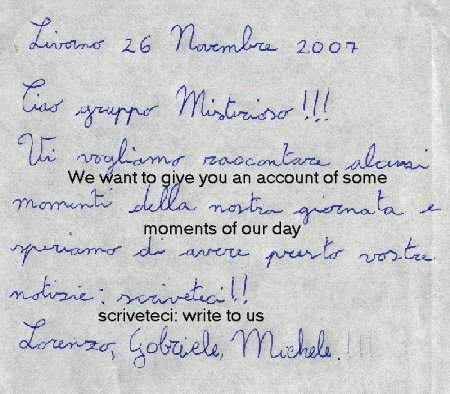 Livorno 26 Novembre 2007
Ciao gruppo Misterioso!!!
Vi vogliamo raccontare alcuni
We want to give you an account of some
momenti della nostra giornata e
moments of our day
speriamo di avere presto vostre
notizie: scriveteci!!
scriveteci: write to us
Lorenzo, Gabriele, Michele.!!!